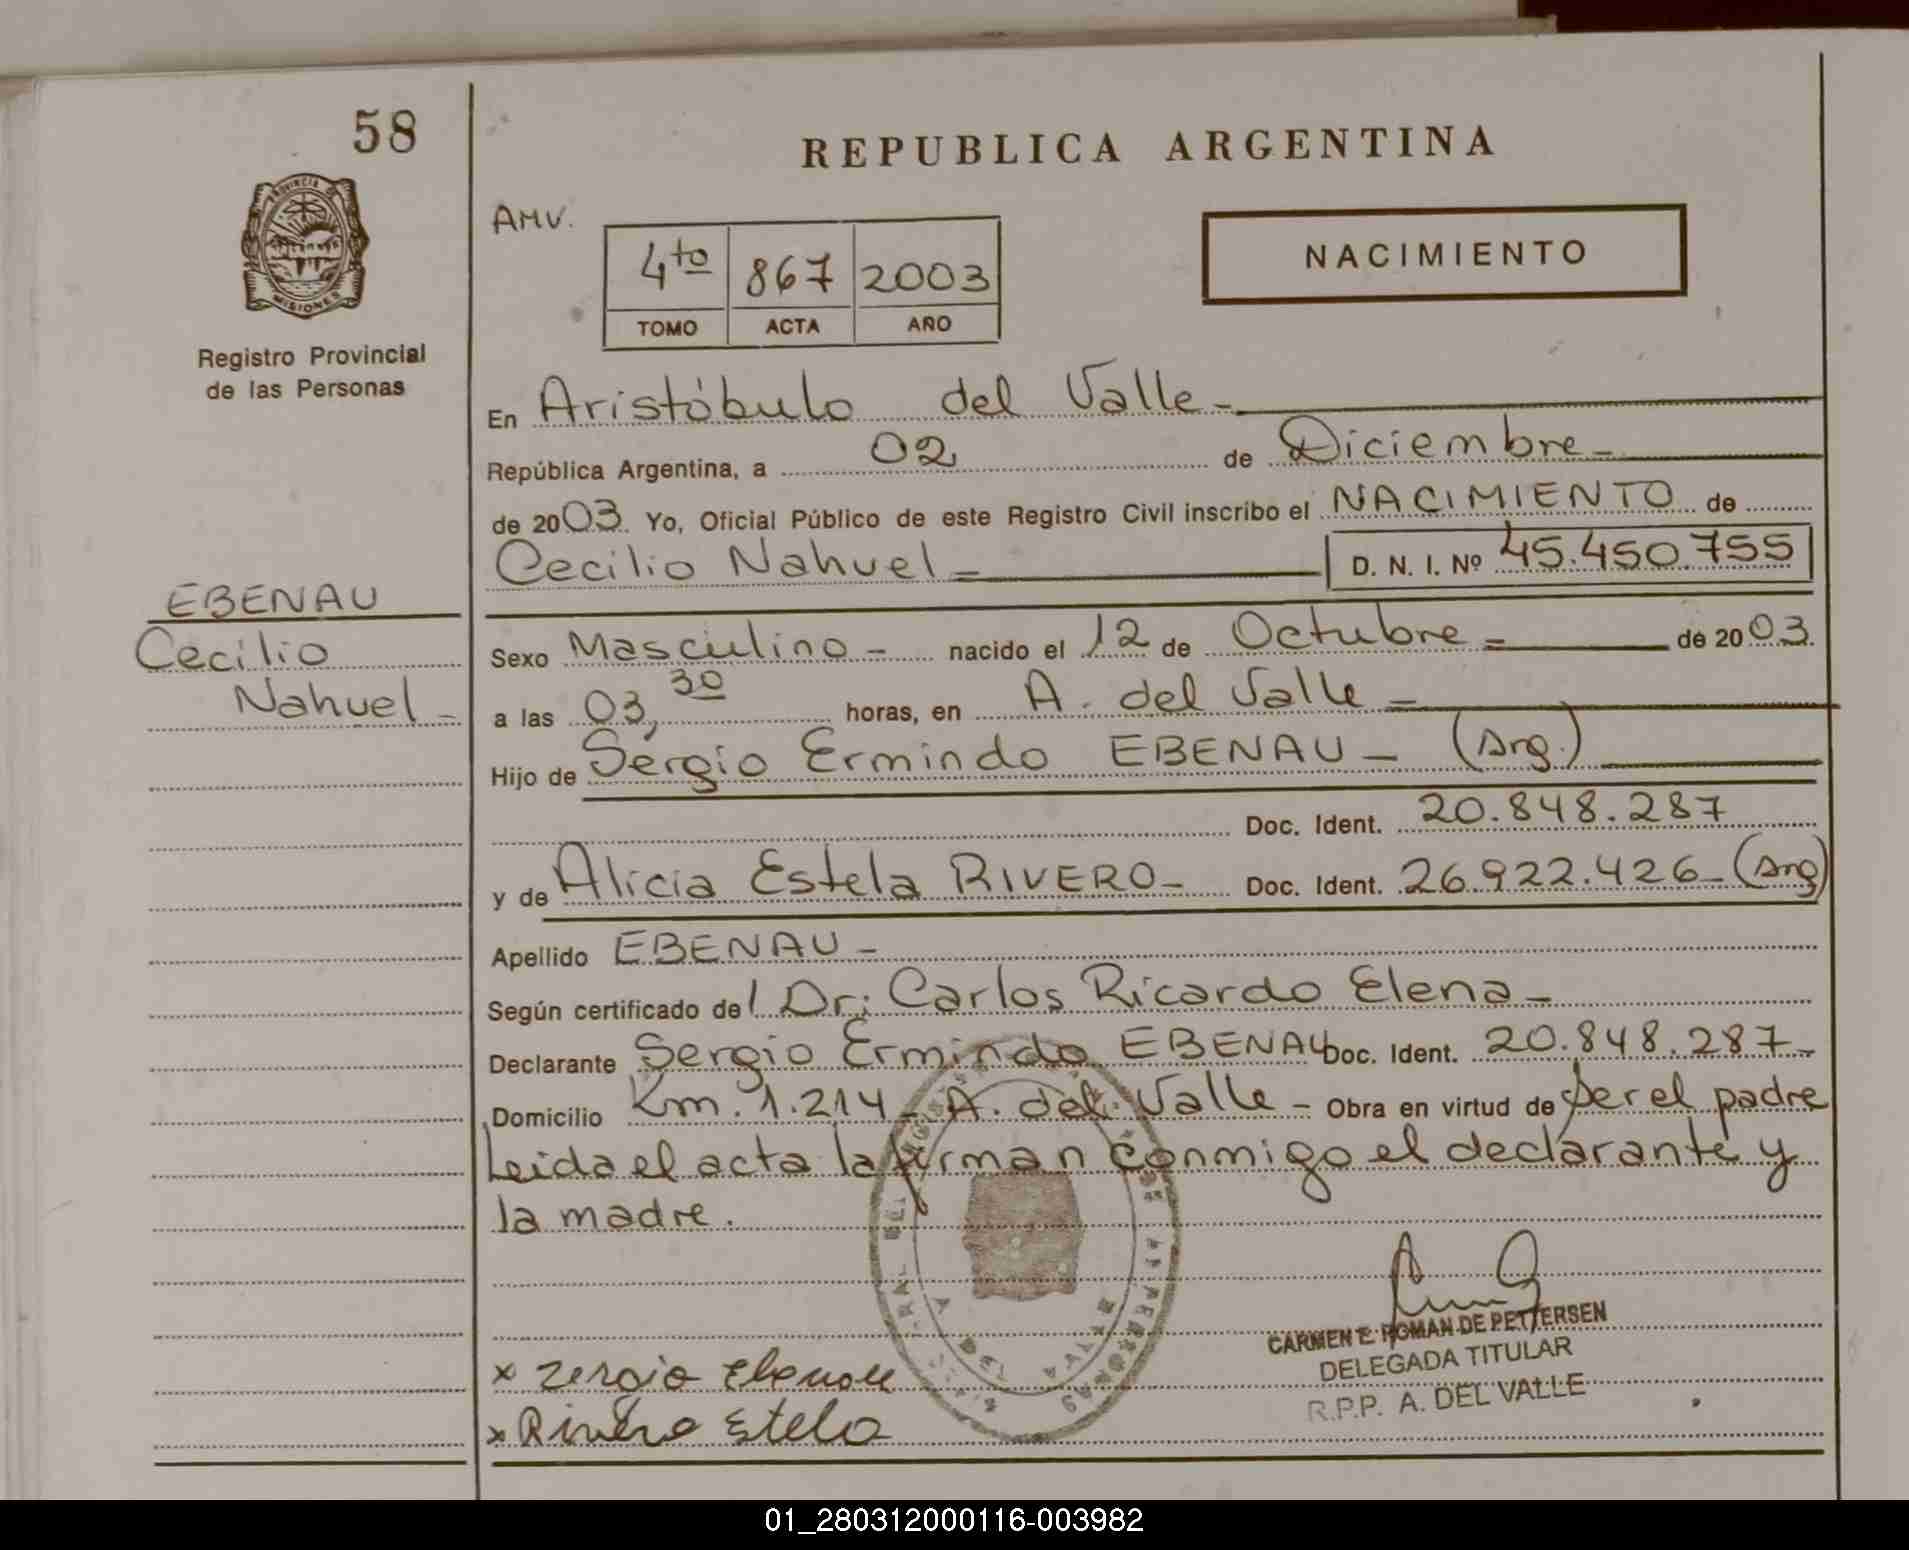 58
REPUBLICA ARGENTINA
PROVINCIA DE
MISIONES
Registro Provincial
de las Personas
AMV.
4to 867 2003
TOMO ACTA AÑO
NACIMIENTO
En Aristóbulo del Valle-
República Argentina, a 02 de Diciembre-
de 2003 Yo, Oficial Público de este Registro Civil inscribo el NACIMIENTO de
Cecilio Nahuel= D. N. I. Nº 45.450.755
EBENAU
Cecilio
Nahuel-
Sexo Masculino- nacido el 12 de Octubre= de 2003.
a las 03,30 horas, en A. del Valle=
Hijo de Sergio Ermindo EBENAU- (Arg.)
Doc. Ident. 20.848.287
y de Alicia Estela RIVERO- Doc. Ident. 26.922.426-(Arg)
Apellido EBENAU-
Según certificado del Dr: Carlos Ricardo Elena-
Declarante Sergio Ermindo EBENAU Doc. Ident. 20.848.287-
Domicilio Km. 1.214- A. del Valle- Obra en virtud de ser el padre
Leida el acta la firman conmigo el declarante y
la madre.
CARMEN E. ROMAN DE PETTERSEN
DELEGADA TITULAR
R.P.P. A. DEL VALLE
x Zergio Ebenau
x Rivero Estela
01_280312000116-003982